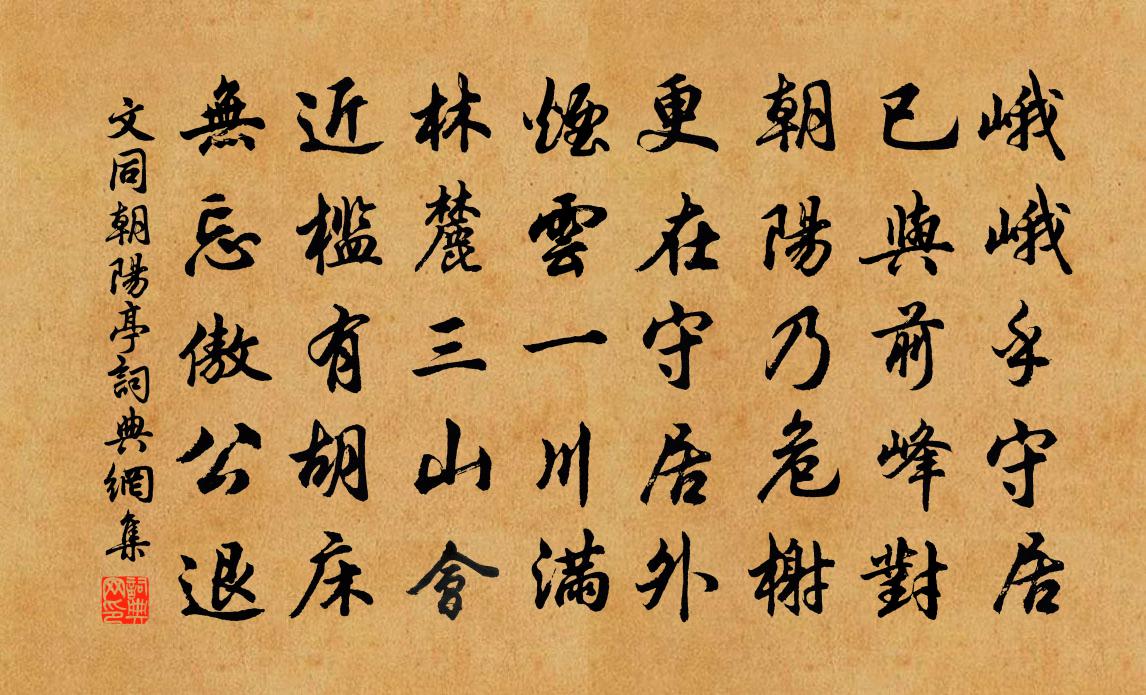 峨峨乎守居
已與前峰對
朝陽乃危榭
更在守居外
煙雲一川滿
林麓三山會
近檻有胡床
無忘傲公退
文同朝陽亭詞典網集
詞典网印